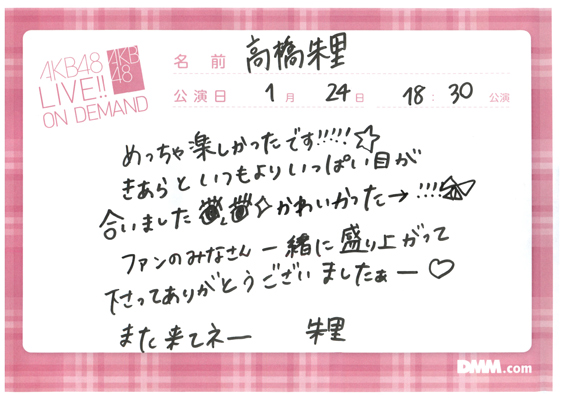 AKB48
LIVE!!
ON DEMAND
AKB
48
名前 高橋朱里
公演日 1月 24日 18:30 公演
めっちゃ楽しかったです!!!!!☆
きあらといつもよりいっぱい目が
合いました かわいかった→!!!!
ファンのみなさん一緒に盛り上がって
下さってありがとうございましたぁー♡
また来てネー 朱里
DMM.com